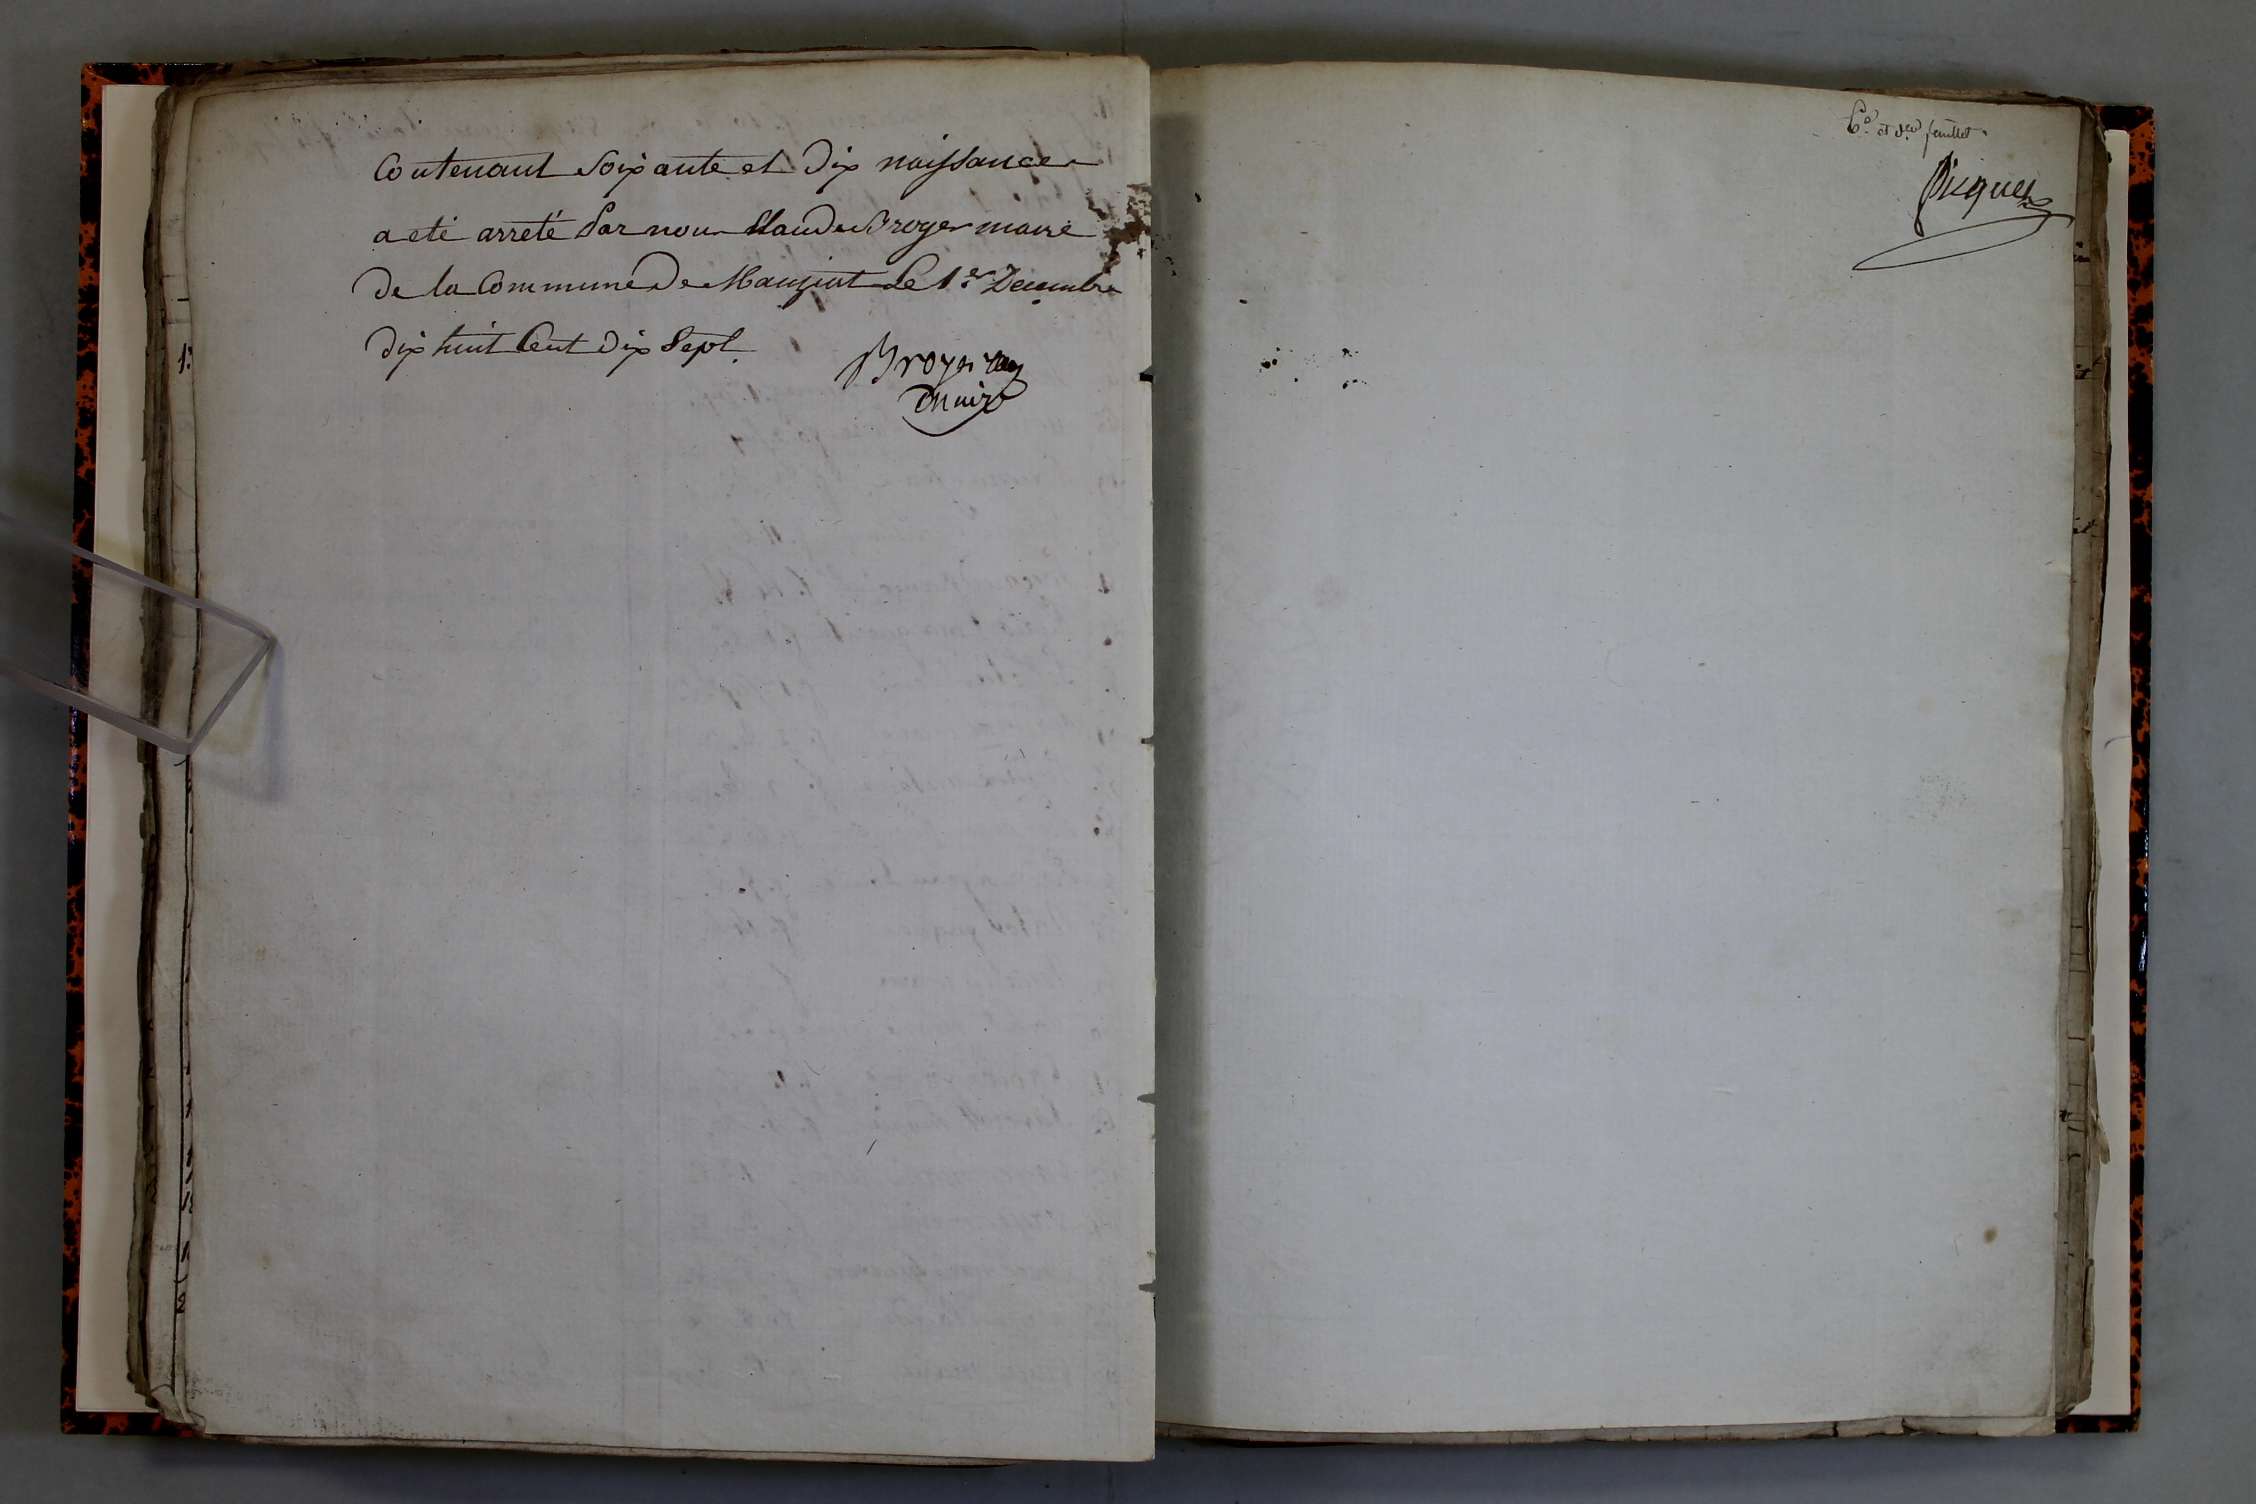 Contenant Soixante et Dix naissances
a eté arreté Par nous Claude Broyer maire
De la Commune De Manziat Le 1er Decembre
Dix huit Cent Dix Sept.
Broyer
maire
6e et der feuillet.
Picquet